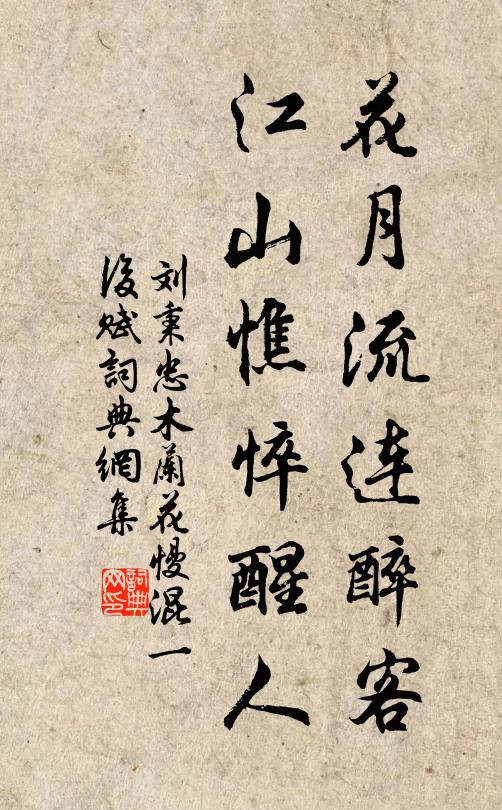 花月流连醉客
江山憔悴醒人
刘秉忠木蘭花慢混一
後赋詞典網集
詞典网印